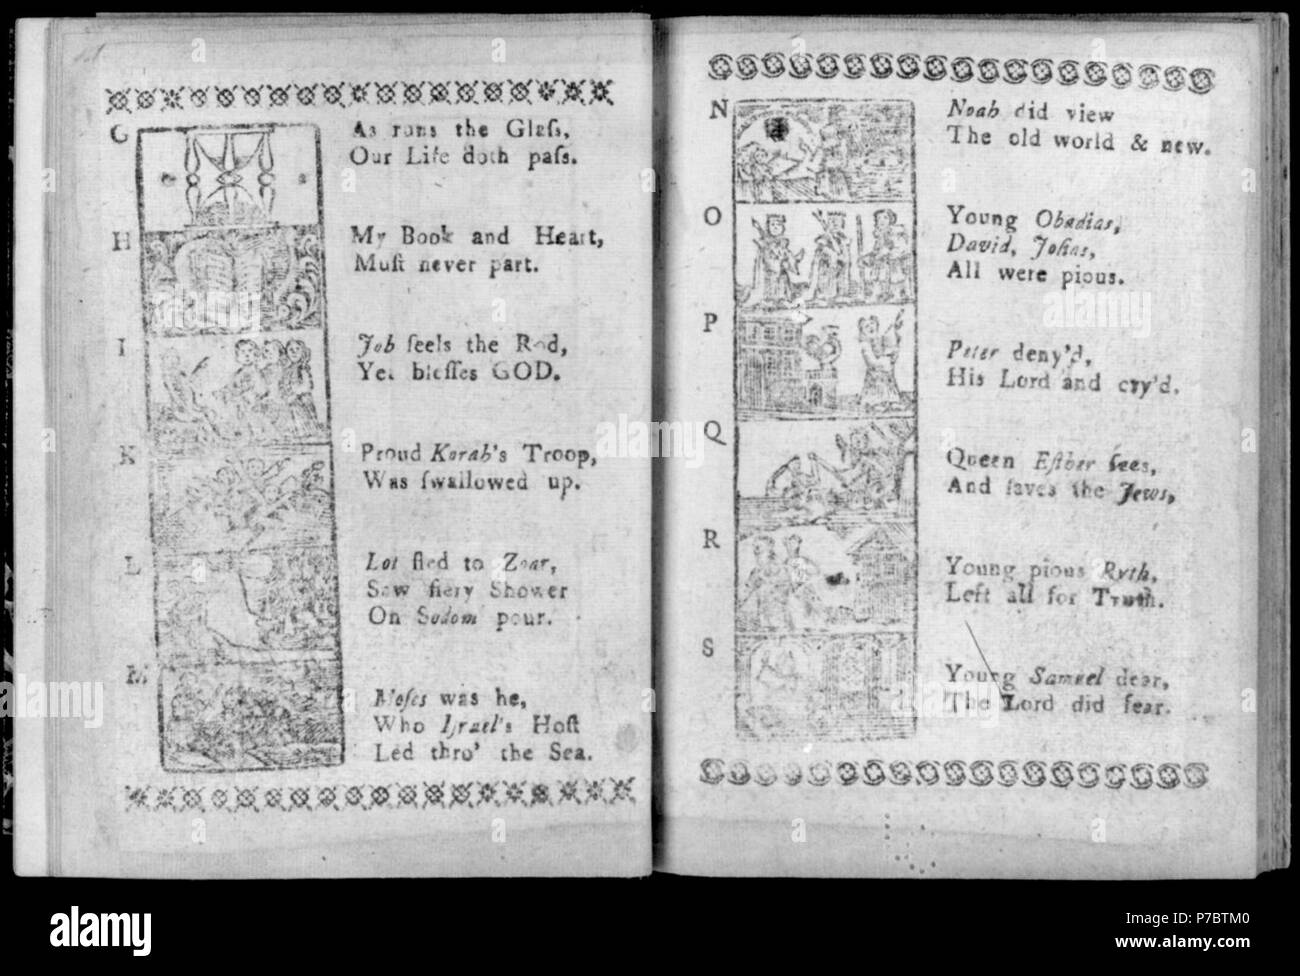 G
As runs the Glaſs,
Our Life doth paſs.
H
My Book and Heart,
Muſt never part.
I
Job feels the Rod,
Yet bleſſes GOD.
K
Proud Korah's Troop,
Was ſwallowed up.
L
Lot fled to Zoar,
Saw fiery Shower
On Sodom pour.
M
Moſes was he,
Who Iſrael's Hoſt
Led thro' the Sea.
N
Noah did view
The old world & new.
O
Young Obadias,
David, Joſias,
All were pious.
P
Peter deny'd,
His Lord and cry'd.
Q
Queen Eſther ſees,
And ſaves the Jews,
R
Young pious Ruth,
Left all for Truth.
S
Young Samuel dear,
The Lord did fear.
alamy
Image ID: P7BTM0
www.alamy.com